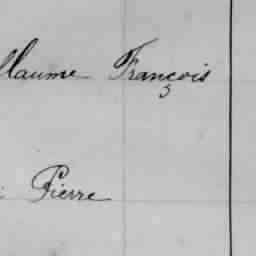 llaume François
Pierre